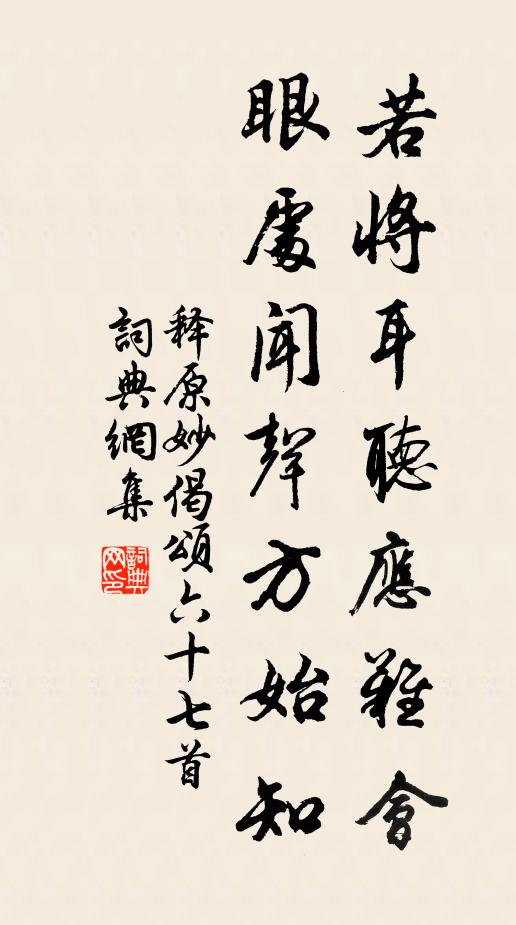 若將耳聽應難會
眼處聞聲方始知
释原妙偈頌六十七首
詞典網集
詞典網印